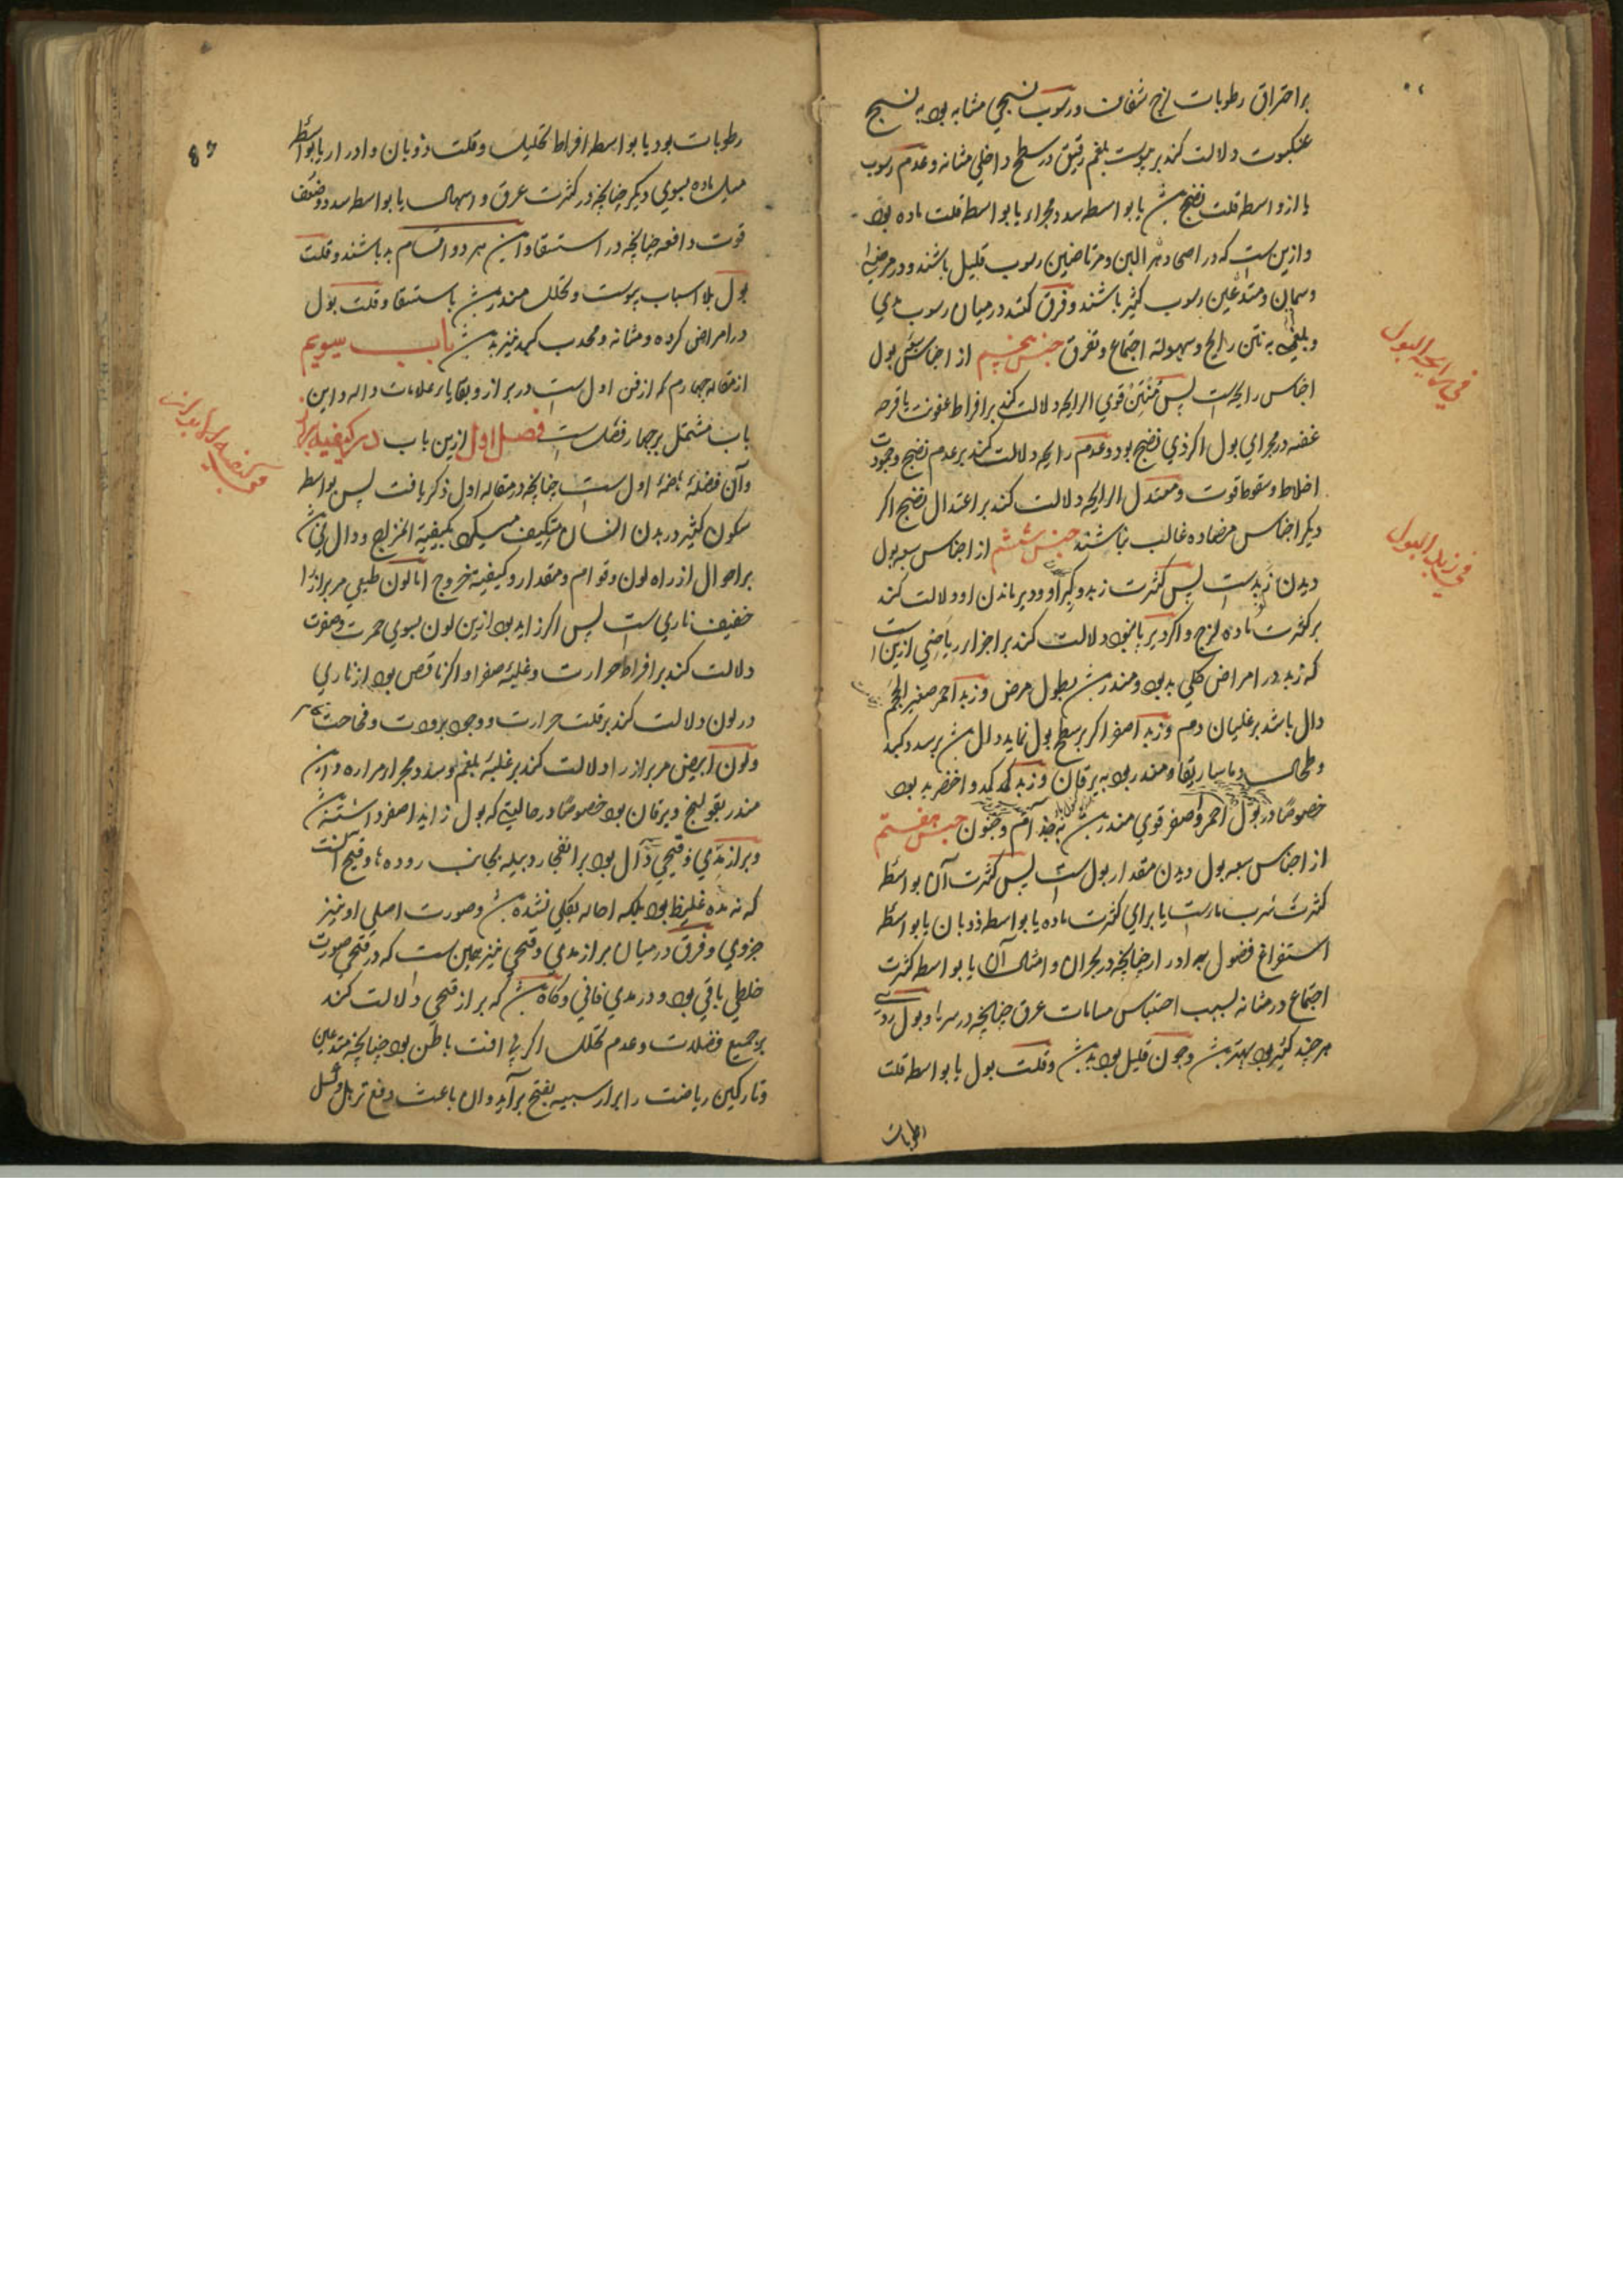 بر احتراق رطوبات لزج شفاف و رسوب نسجی مشابه بود به نسج
عنکبوت دلالت کند بر یبوست بلغم رقیق در سطح داخلی مثانه و عدم رسوب
یا از واسطه قلت نضج باشد یا بواسطه سدد مجرا و یا بواسطه قلت ماده بود
و ازین است که در اصحی و مرتاضین رسوب قلیل باشند و در مرضی
و سمان و متدعین رسوب کثیر باشند و فرق کنند در میان رسوب مدی
و بلغمی به نتن رایح و سهولة اجتماع و تفرق جنس پنجم از اجناس بول
اجناس رایحه است پس منتن قوی الرایحه دلالت کند بر افراط عفونت یا قرحه
عفنه در مجرای بول اگر ذی نضج بود و عدم رایحه دلالت کند بر عدم نضج و جمود
اخلاط و سقوط قوت و معتدل الرایحه دلالت کند بر اعتدال نضج اگر
دیگر اجناس مضاده غالب نباشند جنس ششم از اجناس سبعه بول
دیدن زبد است پس کثرت زبد و کبر او و دیر ماندن او دلالت کند
بر کثرت ماده لزج و اگر دیر پا نبود دلالت کند بر اجزاء ریاحی ازین است
که زبد در امراض کلی بد بود و منذر باشد بطول مرض و زبد احمر صغیر الحجم
دال باشد بر غلیان دم و زبد اصفر اگر بر سطح بول نماید دال باشد بر سدد کبد
و طحال و ماساریقا و منذر بود به یرقان و زبد کمد و اخضر بد بود
خصوصا در بول احمر و اصفر قوی منذر باشد به جذام و جنون جنس هفتم
از اجناس سبعه بول دیدن مقدار بول است پس کثرت آن بواسطه
کثرت شرب ماء است یا برای کثرت ماده یا بواسطه ذوبان یا بواسطه
استفراغ فضول به ادرار چنانچه در بحران و امثال آن یا بواسطه کثرت
اجتماع در مثانه بسبب احتباس مسامات عرق چنانچه در سرما و بول ردی
هر چند کثیر بود بهتر باشد و چون قلیل بود بد باشد و قلت بول یا بواسطه قلت
رطوبات
فی رایحه البول
فی زبد البول
رطوبات بود یا بواسطه افراط تحلیل و قلت ذوبان و ادرار یا بواسطه
میل ماده بسوی دیگر چنانچه در کثرت عرق و اسهال یا بواسطه سدد و ضعف
قوت دافعه چنانچه در استسقا و این هر دو اقسام بد باشند و قلت
بول بلا اسباب یبوست و تحلل منذر باشد باستسقا و قلت بول
در امراض کرده و مثانه و محدب کبد نیز بد باشد باب سیوم
از مقاله چهارم که از فن اول است در براز و بقایاء علامات داله و این
باب مشتمل بر چهار فصل است فصل اول ازین باب در کیفیة براز
و آن فضله هضم اول است چنانچه در مقاله اول ذکر یافت پس بواسطه
سکون کثیر در بدن انسان متکیف میگردد بکیفیة المزاج و دال میباشد
بر احوال از راه لون و قوام و مقدار و کیفیة خروج اما لون طبیعی مر براز را
خفیف ناری است پس اگر زاید بود ازین لون بسوی حمرت و صفرت
دلالت کند بر افراط حرارت و غلبه صفرا و اگر ناقص بود از ناری
در لون دلالت کند بر قلت حرارت و وجود برودت و فجاجت
و لون ابیض مر براز را دلالت کند بر غلبه بلغم و سدد مجراء مراره و این
منذر بقولنج و یرقان بود خصوصا در حالتی که بول زاید اصفر داشته باشد
و براز مدی و قیحی دال بود بر انفجار دبیله بجانب روده ها و قیح آنست
که نه مده غلیظ بود بلکه احاله بکلی نشده باشد و صورت اصلی او نیز
جزوی و فرق در میان براز مدی و قیحی نیز همین است که در قیحی صورت
خلطی باقی بود و در مدی فانی و گاه باشد که براز قیحی دلالت کند
بر جمیع فضلات و عدم تحلل اگر بی آفت باطن بود چنانچه متدعین
و تارکین ریاضت را براز شبیه بقیح برآید و آن باعث دفع ترهل و کسل
فی کیفیة البراز